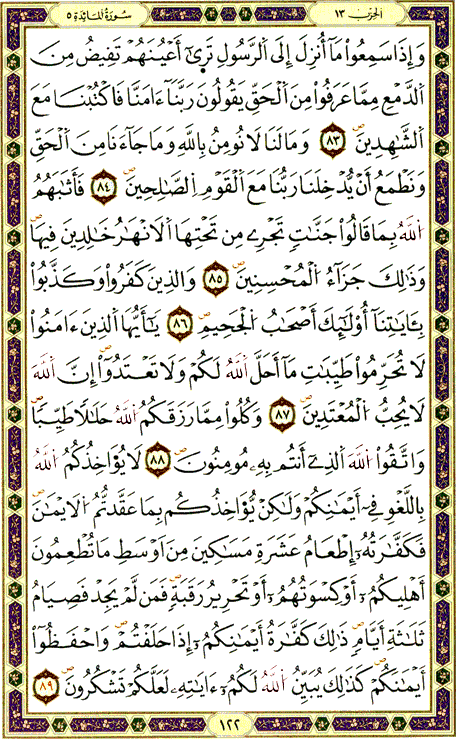 الحِزب ١٣ سُورَةُ المَائدَة ٥
وَإِذَا سَمِعُواْ مَآ أُنزِلَ إِلَى اَلرَّسُولِ تَرَىٰٓ أَعْيُنَهُمْ تَفِيضُ مِنَ
اَلدَّمْعِ مِمَّا عَرَفُواْ مِنَ اَلْحَقِّ يَقُولُونَ رَبَّنَآ ءَامَنَّا فَاكْتُبْنَا مَعَ
اَلشَّٰهِدِينَۖ ٨٣ وَمَا لَنَا لَا نُومِنُ بِاللَّهِ وَمَا جَآءَنَا مِنَ اَلْحَقِّ
وَنَطْمَعُ أَنْ يُّدْخِلَنَا رَبُّنَا مَعَ اَلْقَوْمِ اِلصَّٰلِحِينَۖ ٨٤ فَأَثَٰبَهُمُ
اُللَّهُ بِمَا قَالُواْ جَنَّٰتٖ تَجْرِے مِن تَحْتِهَا اَلَانْهَٰرُ خَٰلِدِينَ فِيهَاۖ
وَذَٰلِكَ جَزَآءُ اُلْمُحْسِنِينَۖ ٨٥ وَالذِينَ كَفَرُواْ وَكَذَّبُواْ
بِـَٔايَٰتِنَآ أُوْلَٰٓئِكَ أَصْحَٰبُ اُلْجَحِيمِۖ ٨٦ يَٰٓأَيُّهَا اَلذِينَ ءَامَنُواْ
لَا تُحَرِّمُواْ طَيِّبَٰتِ مَآ أَحَلَّ اَللَّهُ لَكُمْ وَلَا تَعْتَدُوٓاْۖ إِنَّ اَللَّهَ
لَا يُحِبُّ اُلْمُعْتَدِينَۖ ٨٧ وَكُلُواْ مِمَّا رَزَقَكُمُ اُللَّهُ حَلَٰلاٗ طَيِّباٗۖ
وَاتَّقُواْ اُللَّهَ اَلذِےٓ أَنتُم بِهِۦ مُومِنُونَۖ ٨٨ لَا يُؤَاخِذُكُمُ اُللَّهُ
بِاللَّغْوِ فِےٓ أَيْمَٰنِكُمْ وَلَٰكِنْ يُّؤَاخِذُكُم بِمَا عَقَّدتُّمُ اُلَايْمَٰنَۖ
فَكَفَّٰرَتُهُۥٓ إِطْعَامُ عَشَرَةِ مَسَٰكِينَ مِنَ اَوْسَطِ مَا تُطْعِمُونَ
أَهْلِيكُمُۥٓ أَوْ كِسْوَتُهُمُۥٓ أَوْ تَحْرِيرُ رَقَبَةٖۖ فَمَن لَّمْ يَجِدْ فَصِيَامُ
ثَلَٰثَةِ أَيَّامٖۖ ذَٰلِكَ كَفَّٰرَةُ أَيْمَٰنِكُمُۥٓ إِذَا حَلَفْتُمْۖ وَاحْفَظُوٓاْ
أَيْمَٰنَكُمْۖ كَذَٰلِكَ يُبَيِّنُ اُللَّهُ لَكُمُۥٓ ءَايَٰتِهِۦ لَعَلَّكُمْ تَشْكُرُونَۖ ٨٩
١٢٢